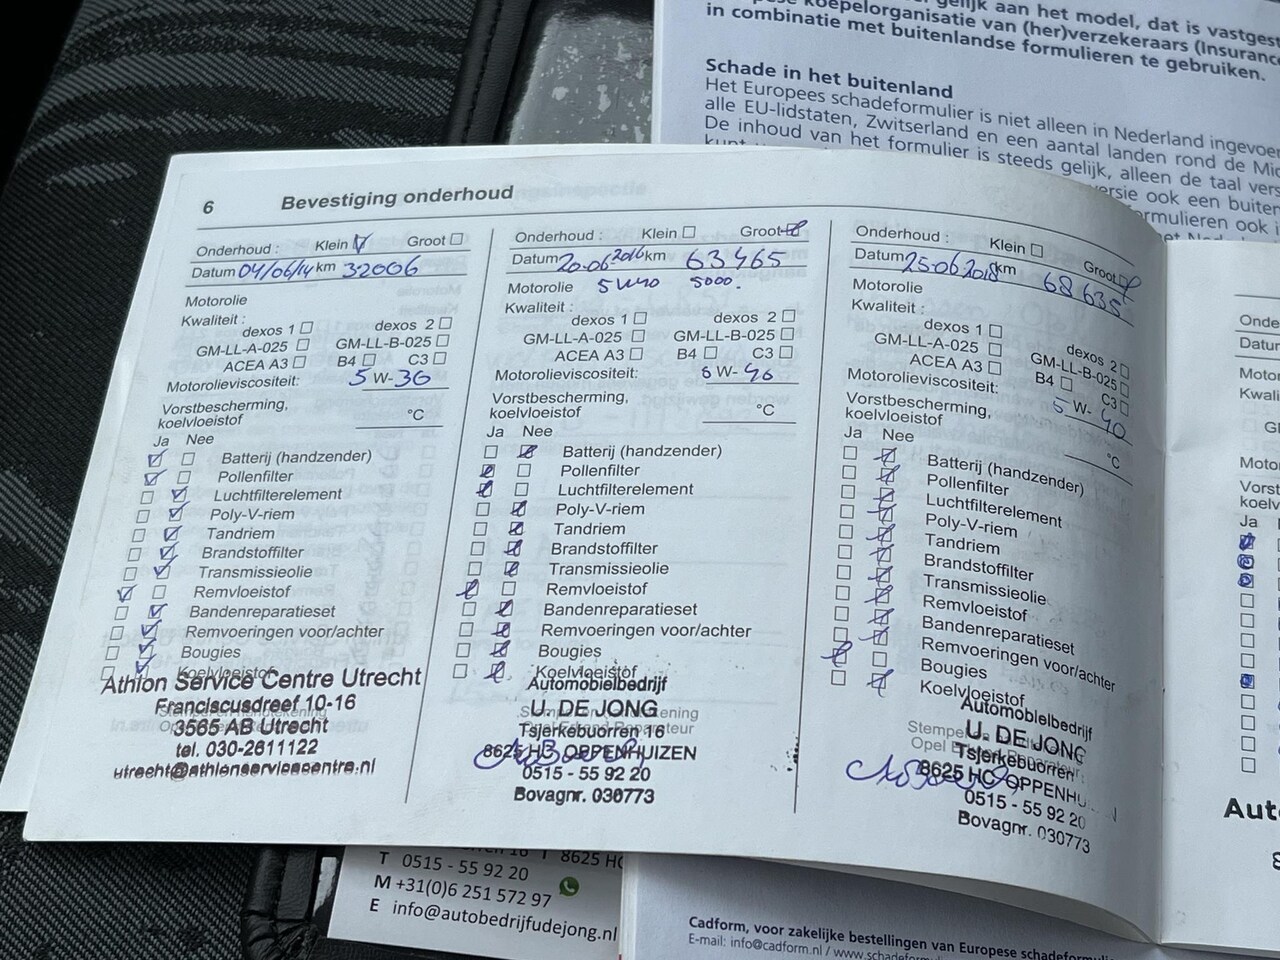 gelijk aan het model, dat is vastgest
koepelorganisatie van (her)verzekeraars (Insurance
in combinatie met buitenlandse formulieren te gebruiken.
Schade in het buitenland
Het Europees schadeformulier is niet alleen in Nederland ingevoer
alle EU-lidstaten, Zwitserland en een aantal landen rond de Mid
De inhoud van het formulier is steeds gelijk, alleen de taal vers
versie ook een buiten
ormulieren ook i
6 Bevestiging onderhoud
Onderhoud : Klein Groot
Datum 04/06/14 km 32006
Motorolie
Kwaliteit :
dexos 1 dexos 2
GM-LL-A-025 GM-LL-B-025
ACEA A3 B4 C3
Motorolieviscositeit: 5 W-30
Vorstbescherming,
koelvloeistof °C
Ja Nee
Batterij (handzender)
Pollenfilter
Luchtfilterelement
Poly-V-riem
Tandriem
Brandstoffilter
Transmissieolie
Remvloeistof
Bandenreparatieset
Remvoeringen voor/achter
Bougies
Koelvloeistof
Athlon Service Centre Utrecht
Franciscusdreef 10-16
3565 AB Utrecht
tel. 030-2611122
utrecht@athlonservicecentre.nl
Onderhoud : Klein Groot
Datum 20-06 2016 km 63465
Motorolie 5W40 5000.
Kwaliteit :
dexos 1 dexos 2
GM-LL-A-025 GM-LL-B-025
ACEA A3 B4 C3
Motorolieviscositeit: 5 W-40
Vorstbescherming,
koelvloeistof °C
Ja Nee
Batterij (handzender)
Pollenfilter
Luchtfilterelement
Poly-V-riem
Tandriem
Brandstoffilter
Transmissieolie
Remvloeistof
Bandenreparatieset
Remvoeringen voor/achter
Bougies
Koelvloeistof
Automobielbedrijf
U. DE JONG
Tsjerkebuorren 16
8625 HG OPPENHUIZEN
0515 - 55 92 20
Bovagnr. 030773
Onderhoud : Klein Groot
Datum 25-06 2018 km 68635
Motorolie
Kwaliteit :
dexos 1 dexos 2
GM-LL-A-025 GM-LL-B-025
ACEA A3 B4 C3
Motorolieviscositeit: 5 W-40
Vorstbescherming,
koelvloeistof °C
Ja Nee
Batterij (handzender)
Pollenfilter
Luchtfilterelement
Poly-V-riem
Tandriem
Brandstoffilter
Transmissieolie
Remvloeistof
Bandenreparatieset
Remvoeringen voor/achter
Bougies
Koelvloeistof
Stempel
Opel
Automobielbedrijf
U. DE JONG
Tsjerkebuorren
8625 HG OPPENHU
0515 - 55 92 20
Bovagnr. 030773
Onde
Datur
Motor
Kwali
GI
Motor
Vorst
koelv
Ja
Aut
8
T 0515 - 55 92 20
M +31(0)6 251 572 97
E info@autobedrijfudejong.nl
Cadform, voor zakelijke bestellingen van Europese schadeform
E-mail: info@cadform.nl / www.schadeformuli